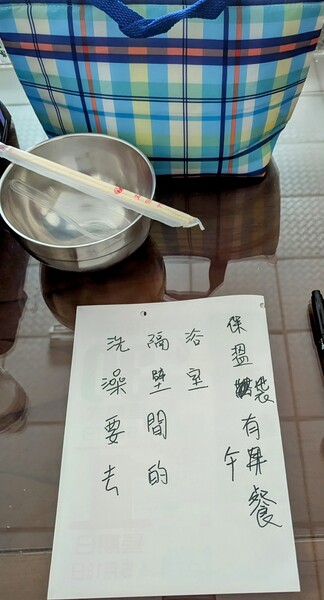 洗澡要去
隔壁間的
浴室
保溫袋有午餐